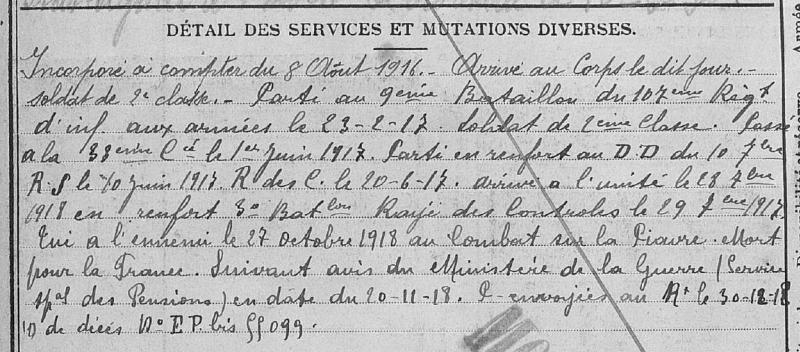 DÉTAIL DES SERVICES ET MUTATIONS DIVERSES.
Incorporé à compter du 8 Août 1916.- Arrivé au Corps le dit jour.-
soldat de 2e classe.- Parti au 9eme Bataillon du 107eme Régt
d'inf. aux armées le 23-2-17. soldat de 2eme Classe. Passé
a la 33eme Cie le 1er Juin 1917. Parti en renfort au D D du 107ere
le 10 Juin 1917. R des C. le 20-6-17. arrivé a l'unité le 28 7bre
1918 en renfort 3e Batlon Rayé des Controles le 29 1917
Tué a l'ennemi le 27 octobre 1918 au Combat sur la Piavre. Mort
pour la France. Suivant avis du Ministère de la Guerre (Service
spal des Pensions) en date du 20-11-18. envoyées au Rt le 30-12-18
de décès No E P. bis 55099.